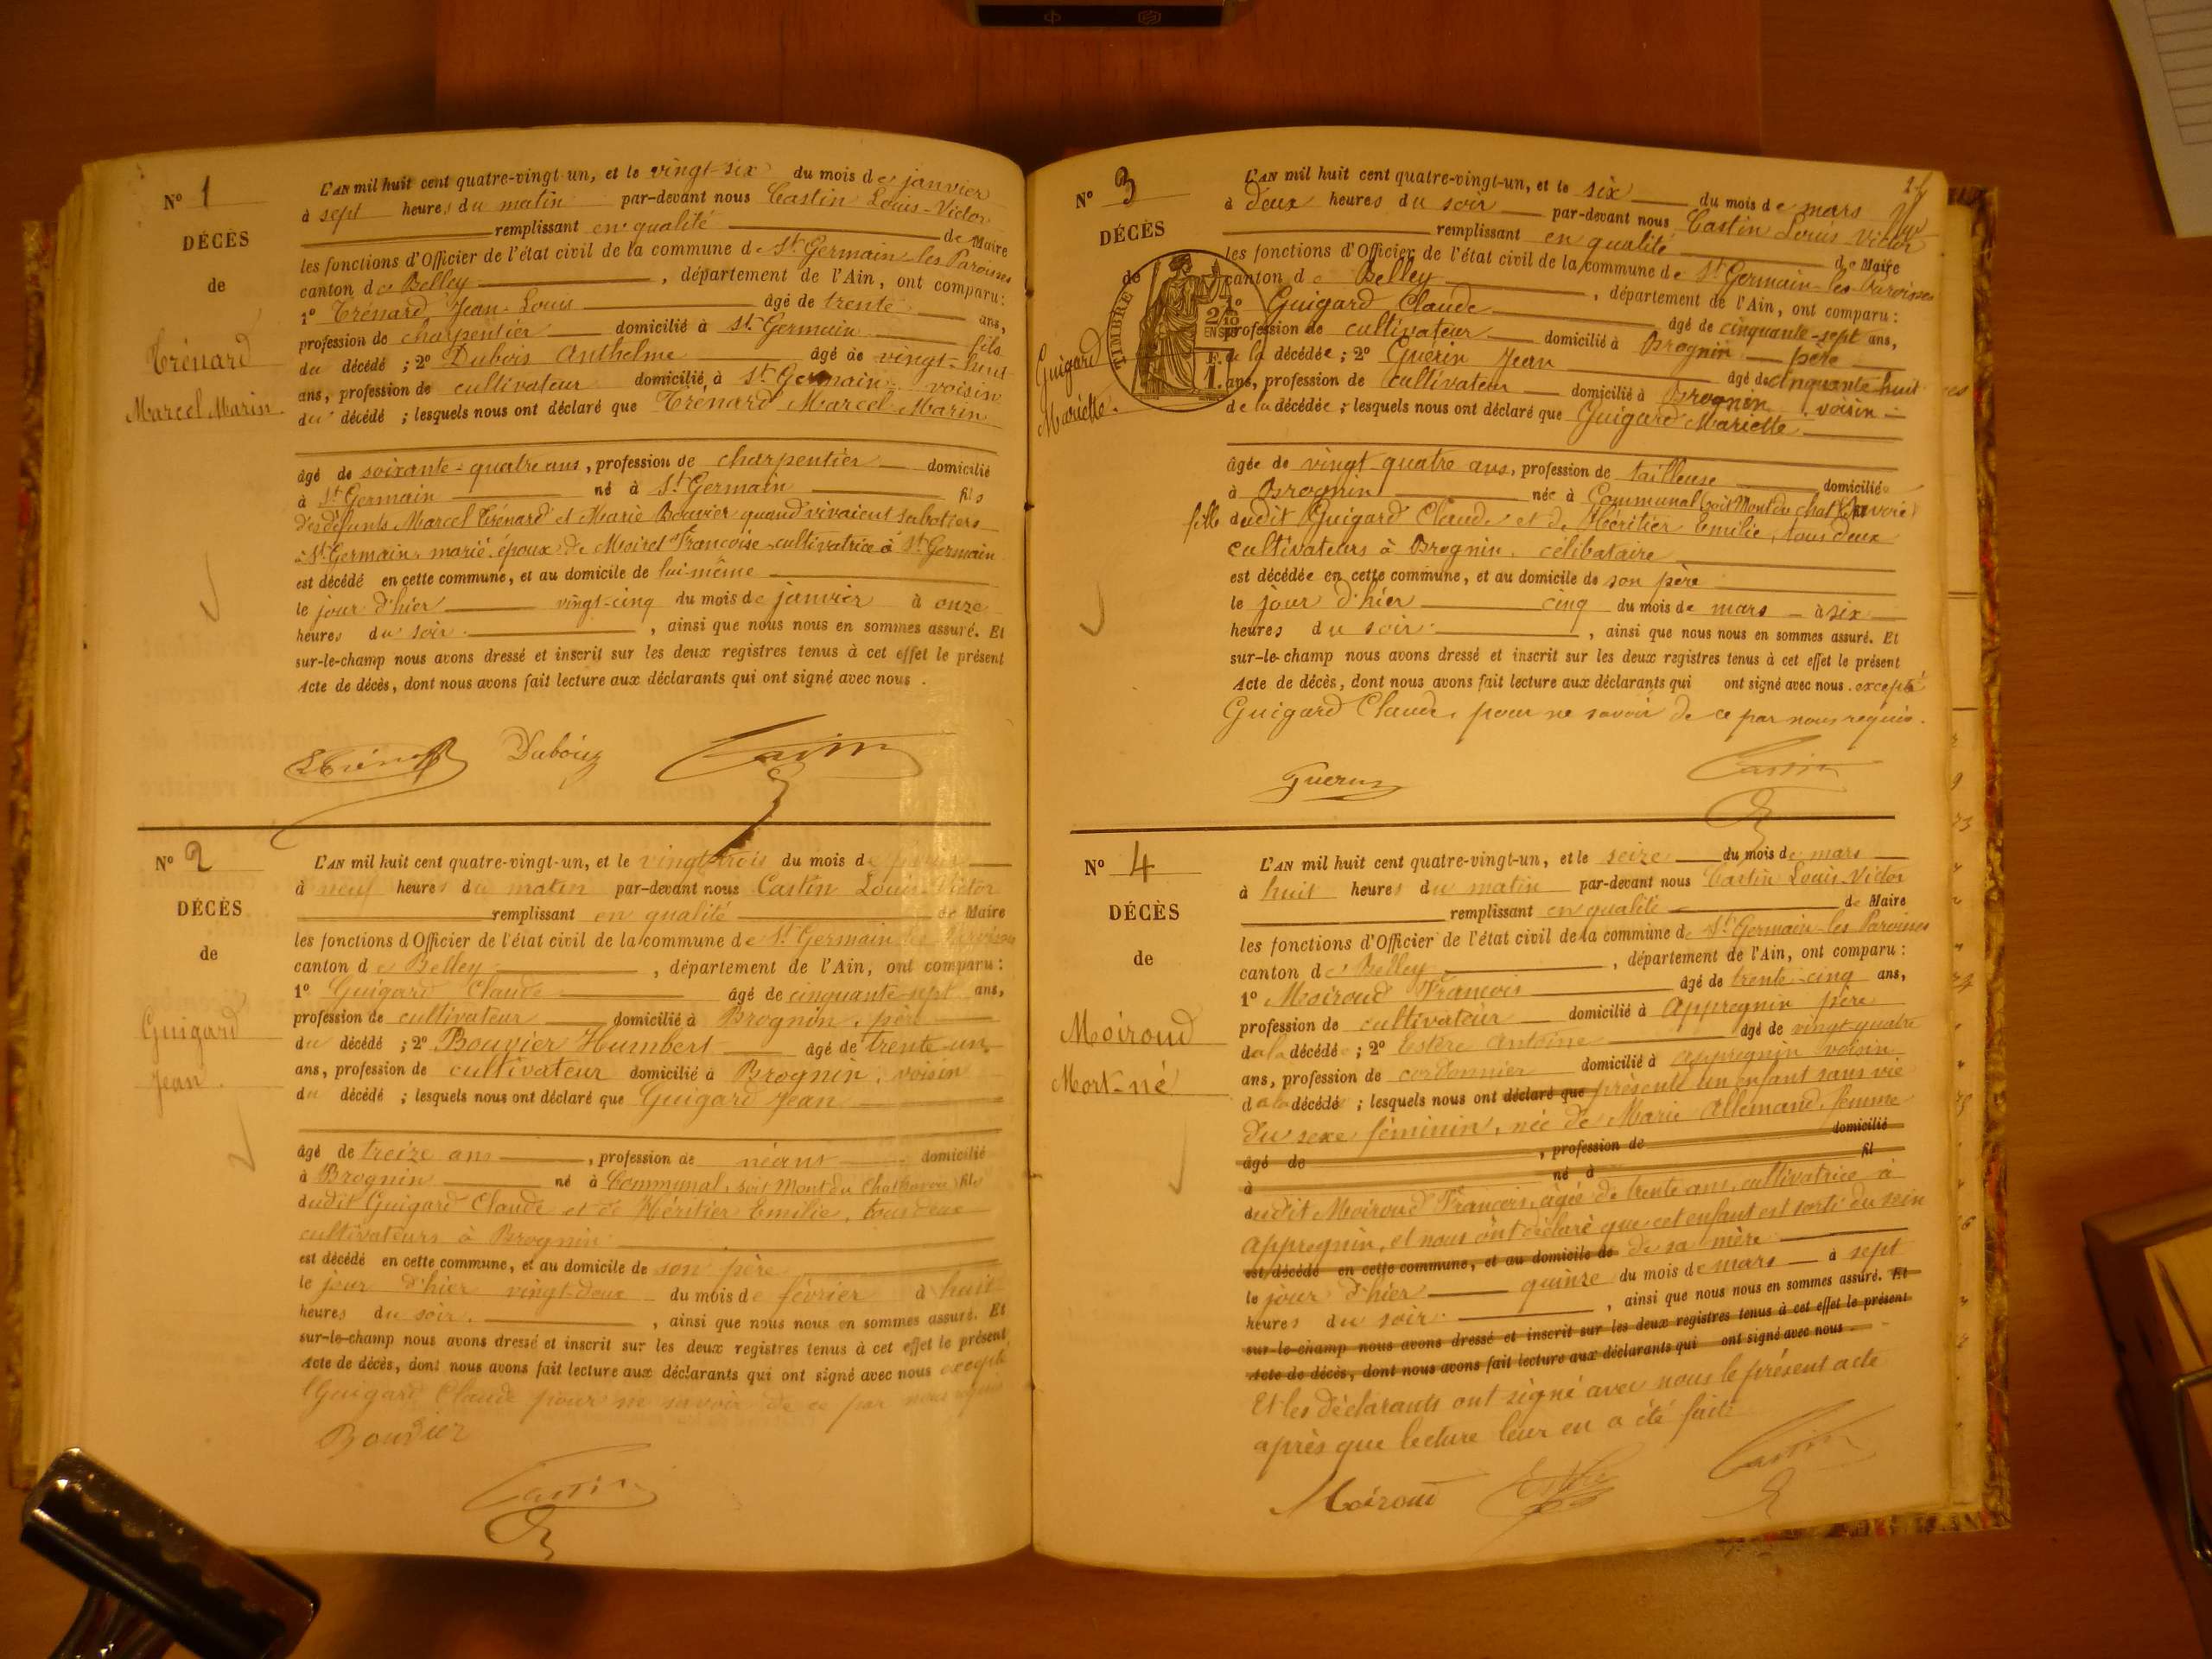 N° 1
DÉCÈS
de
Trénard
Marcel Marin
L'AN mil huit cent quatre-vingt-un, et le vingt-six du mois de janvier
à sept heures du matin par-devant nous Castin Louis-Victor
remplissant en qualité de Maire
les fonctions d'Officier de l'état civil de la commune de St Germain-les-Paroisses
canton de Belley, département de l'Ain, ont comparu:
1° Trénard, Jean-Louis âgé de trente ans,
profession de charpentier domicilié à St Germain fils
du décédé ; 2° Dubois Anthelme âgé de vingt-huit
ans, profession de cultivateur domicilié à St Germain voisin
du décédé ; lesquels nous ont déclaré que Trénard Marcel-Marin
âgé de soixante-quatre ans, profession de charpentier domicilié
à St Germain né à St Germain fils
des défunts Marcel Trénard et Marie Bouvier quand vivaient sabotiers
à St Germain, marié époux de Moiret Françoise cultivatrice à St Germain
est décédé en cette commune, et au domicile de lui-même
le jour d'hier vingt-cinq du mois de janvier à onze
heures du soir, ainsi que nous nous en sommes assuré. Et
sur-le-champ nous avons dressé et inscrit sur les deux registres tenus à cet effet le présent
Acte de décès, dont nous avons fait lecture aux déclarants qui ont signé avec nous.
Dubois Castin
N° 2
DÉCÈS
de
Guigard
Jean
L'AN mil huit cent quatre-vingt-un, et le vingt-trois du mois de février
à neuf heures du matin par-devant nous Castin Louis Victor
remplissant en qualité de Maire
les fonctions d'Officier de l'état civil de la commune de St Germain les Paroisses
canton de Belley, département de l'Ain, ont comparu:
1° Guigard Claude âgé de cinquante-sept ans,
profession de cultivateur domicilié à Brognin, père
du décédé ; 2° Bouvier Humbert âgé de trente-un
ans, profession de cultivateur domicilié à Brognin, voisin
du décédé ; lesquels nous ont déclaré que Guigard Jean
âgé de treize ans, profession de néant domicilié
à Brognin né à Communal, soit Mont du Chat Savoie fils
dudit Guigard Claude et de Héritier Emilie, tous deux
cultivateurs à Brognin
est décédé en cette commune, et au domicile de son père
le jour d'hier vingt-deux du mois de février à huit
heures du soir, ainsi que nous nous en sommes assuré. Et
sur-le-champ nous avons dressé et inscrit sur les deux registres tenus à cet effet le présent
Acte de décès, dont nous avons fait lecture aux déclarants qui ont signé avec nous excepté
Guigard Claude pour ne savoir de ce par nous requis
Bouvier
Castin
N° 3
DÉCÈS
de
Guigard
Mariette.
TIMBRE
2/10
EN SUS
F.
1.
L'AN mil huit cent quatre-vingt-un, et le six du mois de mars
à deux heures du soir par-devant nous Castin Louis Victor
remplissant en qualité de Maire
les fonctions d'Officier de l'état civil de la commune de St Germain-les-Paroisses
canton de Belley, département de l'Ain, ont comparu:
1° Guigard Claude âgé de cinquante-sept ans,
profession de cultivateur domicilié à Brognin père
de la décédée ; 2° Guérin Jean âgé de cinquante-huit
ans, profession de cultivateur domicilié à Brognin, voisin
de la décédée ; lesquels nous ont déclaré que Guigard Mariette
âgée de vingt quatre ans, profession de tailleuse domiciliée
à Brognin née à Communal (soit Mont du chat Savoie)
fille dudit Guigard Claude et de Héritier Emilie, tous deux
cultivateurs à Brognin, célibataire
est décédée en cette commune, et au domicile de son père
le jour d'hier cinq du mois de mars à six
heures du soir, ainsi que nous nous en sommes assuré. Et
sur-le-champ nous avons dressé et inscrit sur les deux registres tenus à cet effet le présent
Acte de décès, dont nous avons fait lecture aux déclarants qui ont signé avec nous. excepté
Guigard Claude, pour ne savoir de ce par nous requis.
Guerin Castin
N° 4
DÉCÈS
de
Moiroud
Mort-né
L'AN mil huit cent quatre-vingt-un, et le seize du mois de mars
à huit heures du matin par-devant nous Castin Louis Victor
remplissant en qualité de Maire
les fonctions d'Officier de l'état civil de la commune de St Germain-les-Paroisses
canton de Belley, département de l'Ain, ont comparu:
1° Moiroud François âgé de trente-cinq ans,
profession de cultivateur domicilié à Appregnin père
de la décédée ; 2° Estère Antoine âgé de vingt-quatre
ans, profession de cordonnier domicilié à Appregnin voisin
de la décédée ; lesquels nous ont déclaré que présenté un enfant sans vie
du sexe féminin, née de Marie Allemand, femme
âgé de, profession de domicilié
à né à fil
dudit Moiroud François, âgée de trente ans, cultivatrice à
Appregnin, et nous ont déclaré que cet enfant est sorti du sein
est décédé en cette commune, et au domicile de de sa mère
le jour d'hier quinze du mois de mars à sept
heures du soir, ainsi que nous nous en sommes assuré. Et
sur-le-champ nous avons dressé et inscrit sur les deux registres tenus à cet effet le présent
Acte de décès, dont nous avons fait lecture aux déclarants qui ont signé avec nous
Et les déclarants ont signé avec nous le présent acte
après que lecture leur en a été faite
Moiroud Castin